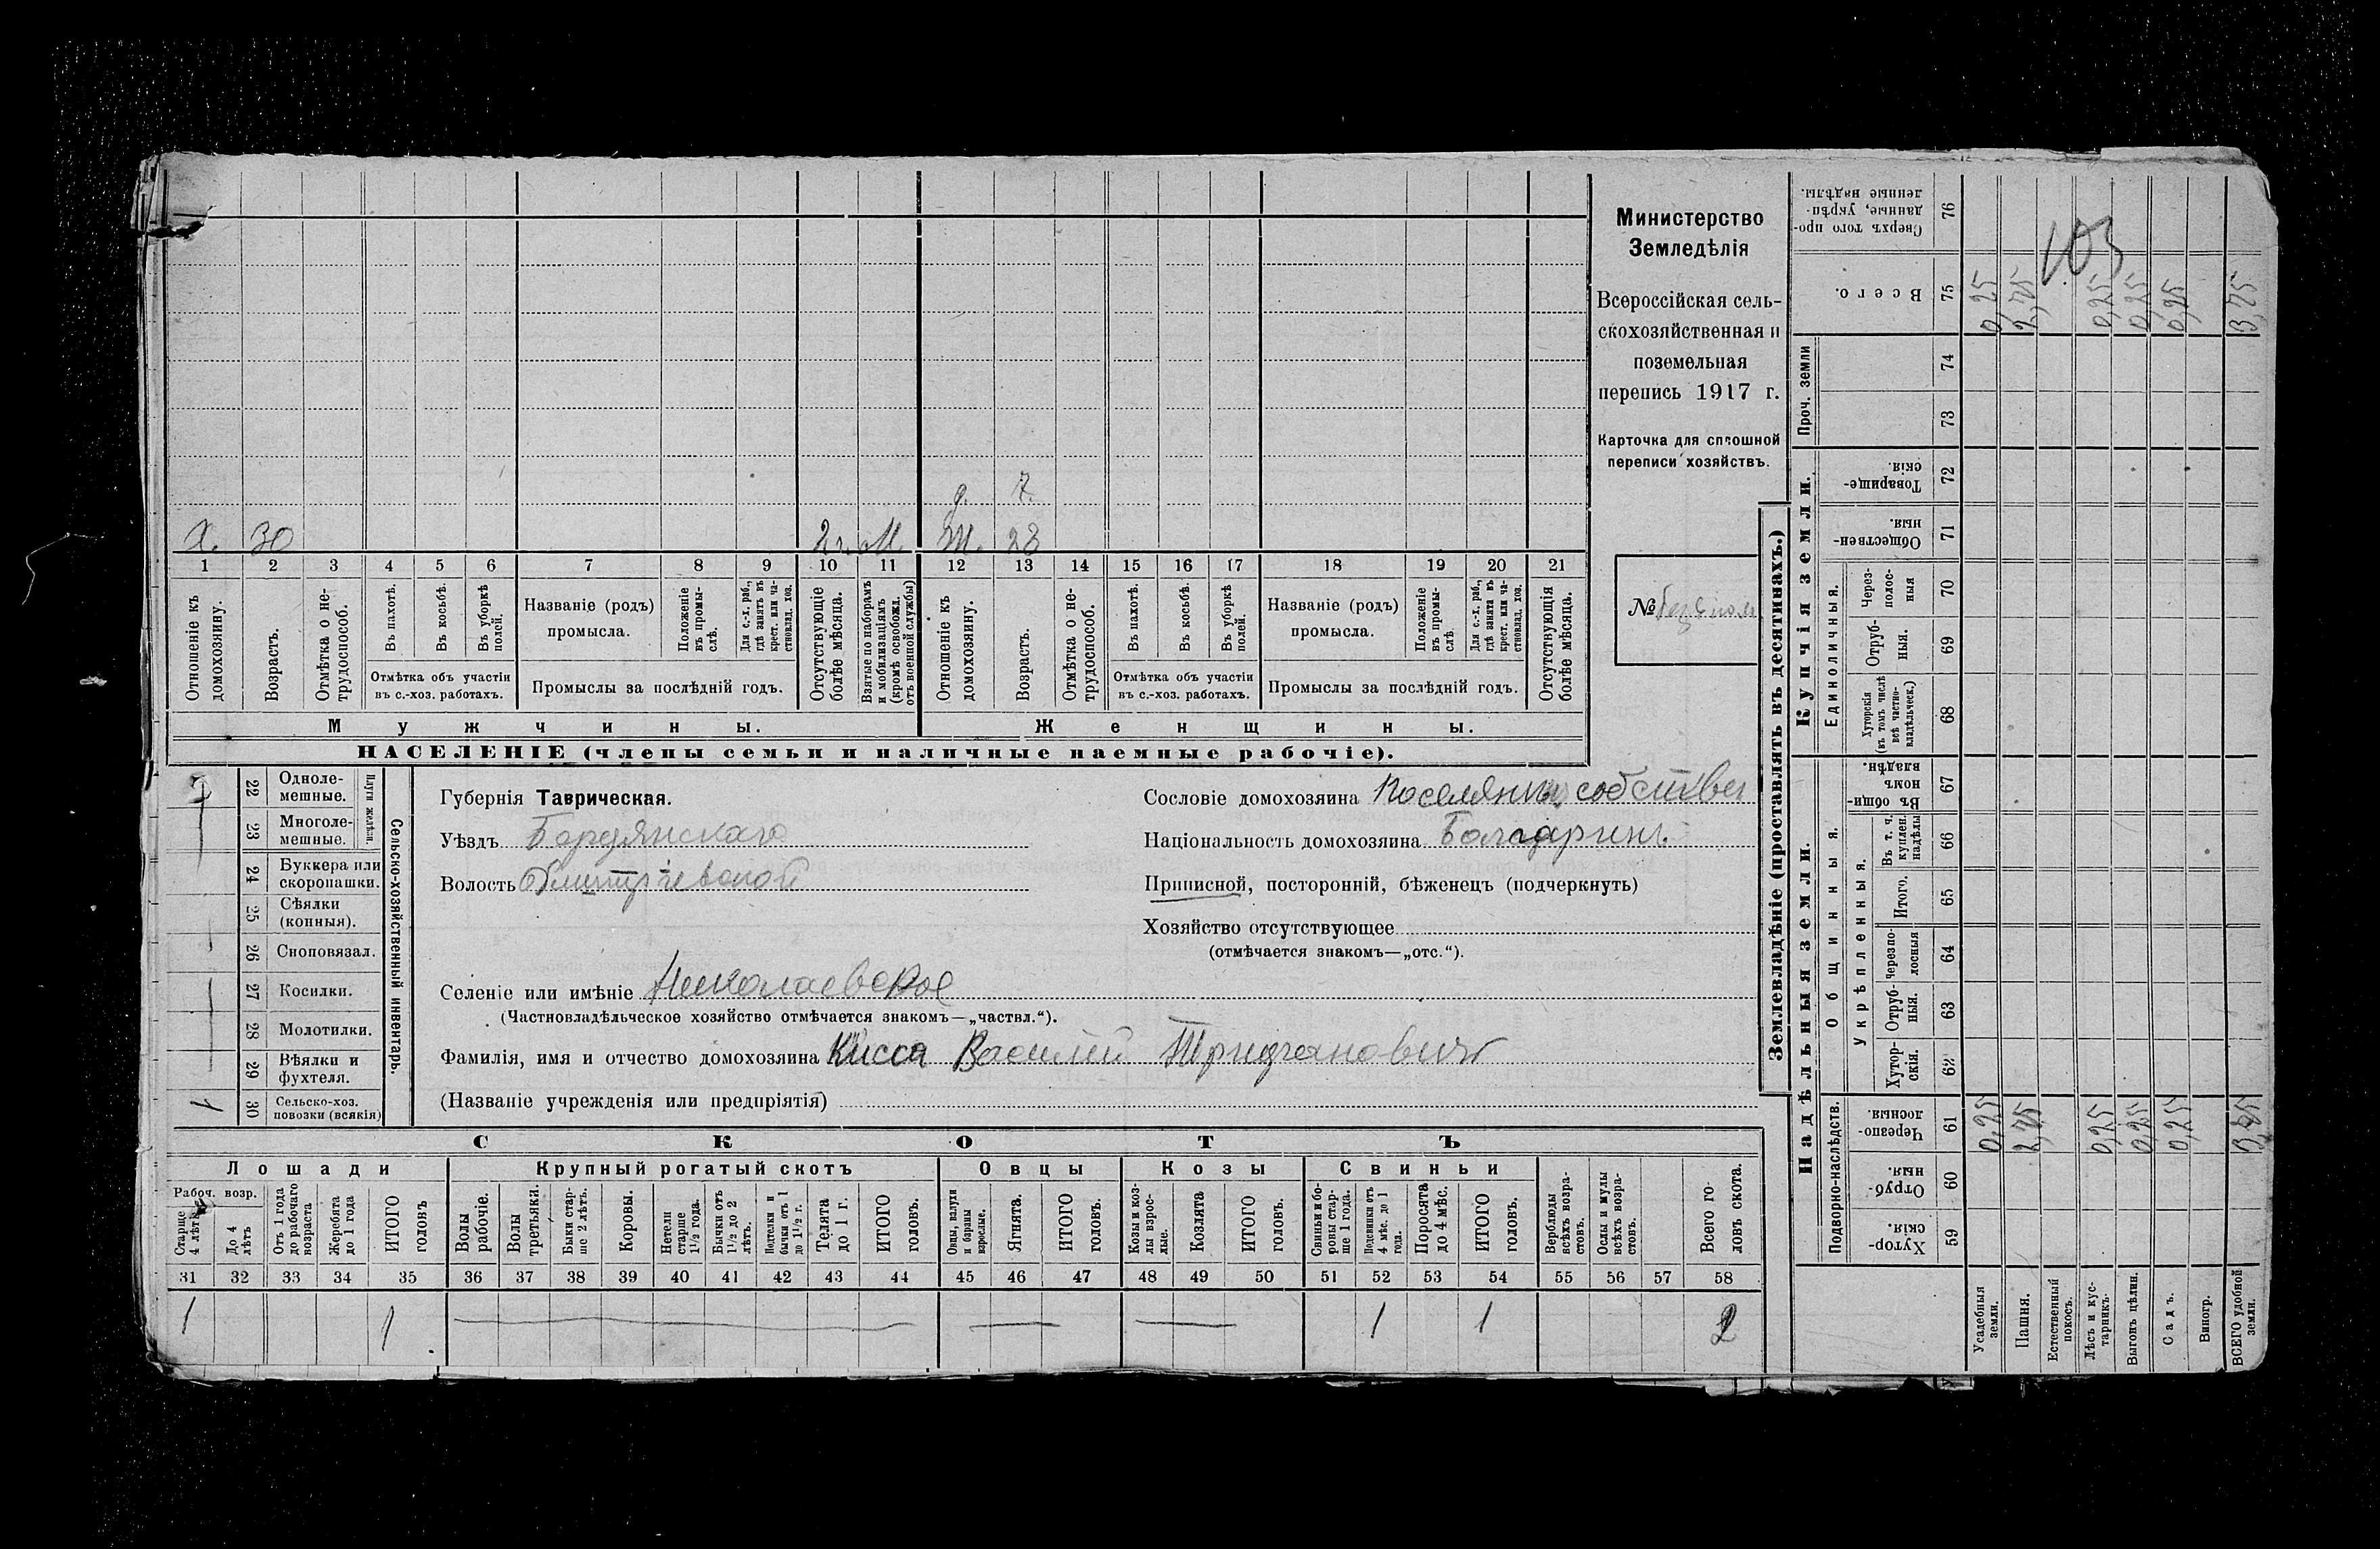 Х. 30 2 г. М. Ж. 23
д. 7.
1 2 3 4 5 6 7 8 9 10 11 12 13 14 15 16 17 18 19 20 21
Отношеніе къ домохозяину.
Возрастъ.
Отмѣтка о не-трудоспособ.
Въ пахотѣ.
Въ косьбѣ.
Въ уборкѣ полей.
Отмѣтка объ участіи въ с.-хоз. работахъ.
Названіе (родъ) промысла.
Положеніе въ промы-слѣ.
Для с.-х. раб., гдѣ занятъ въ крест. или ча-стновлад. хоз.
Промыслы за послѣдній годъ.
Отсутствующіе болѣе мѣсяца.
Взятые по наборамъ и мобилизаціямъ (кромѣ освобожд. отъ военной службы)
Отношеніе къ домохозяину.
Возрастъ.
Отмѣтка о не-трудоспособ.
Въ пахотѣ.
Въ косьбѣ.
Въ уборкѣ полей.
Отмѣтка объ участіи въ с.-хоз. работахъ.
Названіе (родъ) промысла.
Положеніе въ промы-слѣ.
Для с.-х. раб., гдѣ занята въ крест. или ча-стновлад. хоз.
Промыслы за послѣдній годъ.
Отсутствующія болѣе мѣсяца.
Мужчины. Женщины.
НАСЕЛЕНІЕ (члены семьи и наличные наемные рабочіе).
Министерство
Земледѣлія
Всероссійская сель-
скохозяйственная и
поземельная
перепись 1917 г.
Карточка для сплошной
переписи хозяйствъ.
№
22 Одноле-мешные.
23 Многоле-мешные.
Плуги желѣзн.
24 Буккера или скоропашки.
25 Сѣялки (конныя).
26 Сноповязал.
27 Косилки.
28 Молотилки.
29 Вѣялки и фухтеля.
30 Сельско-хоз. повозки (всякія) 1
Сельско-хозяйственный инвентарь.
Губернія Таврическая.
Уѣздъ Бердянскаго
Волость Дмитріевской
Селеніе или имѣніе Николаевское
(Частновладѣльческое хозяйство отмѣчается знакомъ—„частвл.“).
Фамилія, имя и отчество домохозяина Кисса Василий Трифановичъ
(Названіе учрежденія или предпріятія)
Сословіе домохозяина Поселянинъ собствен
Національность домохозяина Болгаринъ.
Приписной, посторонній, бѣженецъ (подчеркнуть)
Хозяйство отсутствующее
(отмѣчается знакомъ—„отс.“).
СКОТЪ
Лошади Крупный рогатый скотъ Овцы Козы Свиньи
Рабоч. возр.
Старше 4 лѣтъ
До 4 лѣтъ
Отъ 1 года до рабочаго возраста
Жеребята до 1 года
ИТОГО головъ
Волы рабочіе.
Волы третьяки.
Быки стар-ше 2 лѣтъ.
Коровы.
Нетели старше 1½ года.
Бычки отъ 1½ до 2 лѣтъ.
Подтелки и бычки отъ 1 до 1½ г.
Телята до 1 г.
ИТОГО головъ.
Овцы, валухи и бараны взрослые.
Ягнята.
ИТОГО головъ.
Козы и коз-лы взрос-лые.
Козлята
ИТОГО головъ.
Свиньи и бо-ровы стар-ше 1 года.
Подсвинки отъ 4 мѣс. до 1 года.
Поросята до 4 мѣс.
ИТОГО головъ.
Верблюды всѣхъ возра-стовъ.
Ослы и мулы всѣхъ возра-стовъ.
Всего го-ловъ скота.
31 32 33 34 35 36 37 38 39 40 41 42 43 44 45 46 47 48 49 50 51 52 53 54 55 56 57 58
1 1 1 1 2
Землевладѣніе (проставлять въ десятинахъ.)
Надѣльныя земли. Купчія земли. Проч. земли
Подворно-наслѣдств.
Общинныя.
Укрѣпленныя.
Единоличныя.
Хутор-скія. 59
Отруб-ныя. 60
Черезпо-лосныя. 61
Хутор-скія. 62
Отруб-ныя. 63
Черезпо-лосныя 64
Итого. 65
Въ т. ч. куплен. надѣлы 66
Въ общин-номъ владѣн. 67
Хуторскія (въ томъ числѣ всѣ частно-владѣльческ.) 68
Отруб-ныя. 69
Через-полос-ныя 70
Обществен-ныя. 71
Товарище-скія. 72
73
74
Всего. 75
Сверхъ того про-данные, укрѣп-ленные надѣлы. 76
103
Усадебныя земли. 0,25 0,25
Пашня. 2,75 2,75
Естественный покосъ.
Лѣсъ и кус-тарникъ. 0,25 0,25
Выгонъ цѣлин. 0,25 0,25
Садъ. 0,25 0,25
Виногр.
ВСЕГО удобной земли. 3,75 3,75